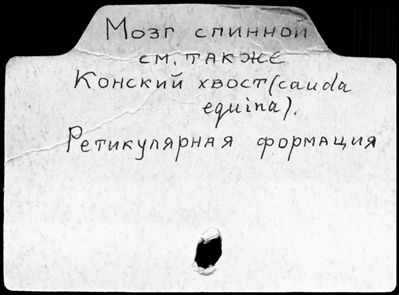 Мозг спинной
см. также
Конский хвост (cauda
equina).
Ретикулярная формация